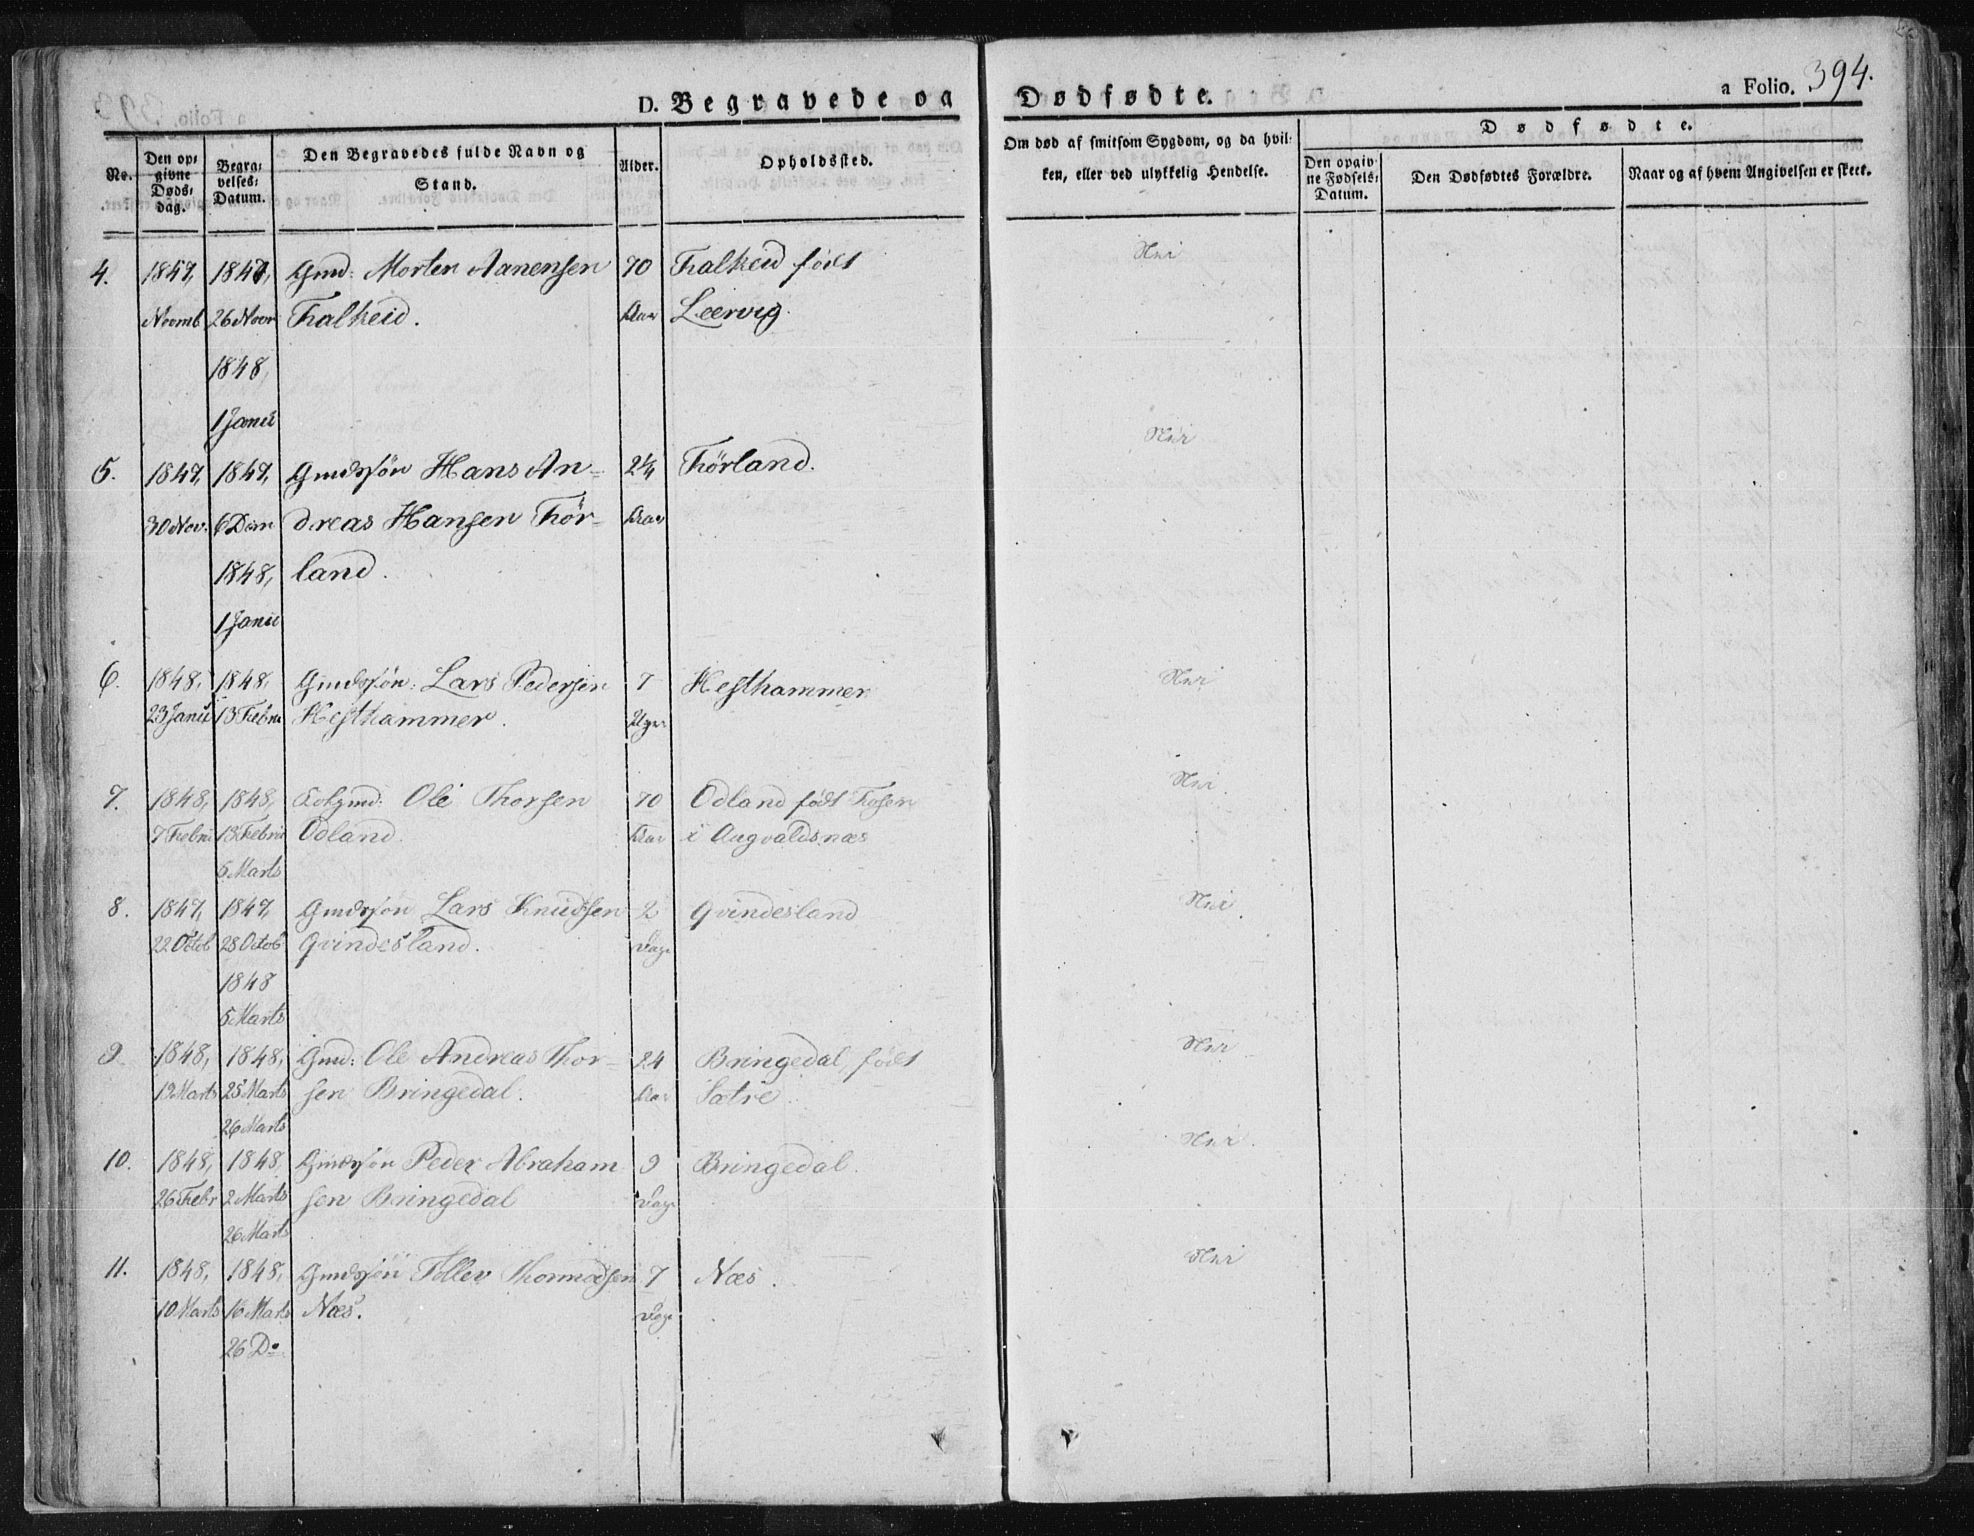 D. Begravede og Dødfødte. a Folio. 394.
No. Den opgivne Dødsdag. Begravelses-Datum. Den Begravedes fulde Navn og Stand. Alder. Opholdssted. Om død af smitsom Sygdom, og da hvilken, eller ved ulykkelig Hendelse. Dødfødte. Den opgivne Fødsels-Datum. Den Dødfødtes Forældre. Naar og af hvem Angivelsen er skeet.
4. 1847, 1847, Gmd: Morten Aanensen 70 Falkeid født Nei
Novmb 26 Novr Falkeid. Aar Leervig.
1848,
1 Janu
5. 1847, 1847, Gmdssøn Hans An- 2¼ Førland. Nei
30 Nov. 6 Dem dreas Hansen Før- Aar
1848, land.
1 Janu
6. 1848, 1848, Gmdssøn: Lars Pedersen 7 Hesthammer Nei
23 Janu 13 Febru Hesthammer. Uger
7. 1848, 1848, Ole Thorsen 70 Odland født Fosen Nei.
7 Febru 13 Febru Odland. Aar i Augvaldsnæs
6 Marts
8. 1847, 1847, Gmdssøn Lars Knudsen 2 Qvindesland Nei.
22 Octob 28 Octob Qvindesland. Dage
1848
5 Marts
9. 1848, 1848, Gmd: Ole Andreas Thor- 24 Bringedal, født Nei
19 Marts 25 Marts sen Bringedal. Aar Sætre.
26 Marts
10. 1848, 1848, Gmdssøn Peder Abraham 9 Bringedal. Nei.
26 Febr 2 Marts sen Bringedal Dage
26 Marts
11. 1848, 1848, Gmdssøn Tollev Thormodsen 7 Næs. Nei
10 Marts 16 Marts Næs. Dage
26 Do